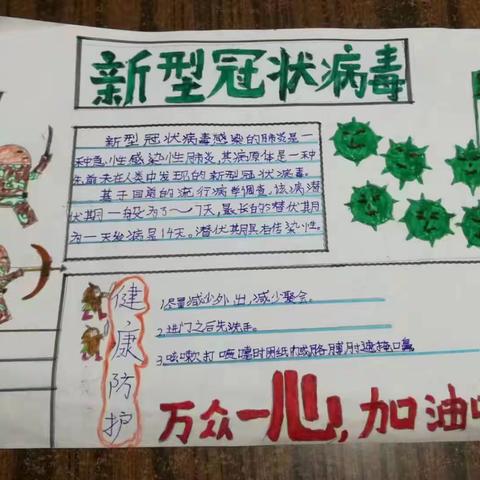 新型冠状病毒
新型冠状病毒感染的肺炎是一
种急性感染性肺炎，其病原体是一种
先前未在人类中发现的新型冠状病毒。
基于目前的流行病学调查，该病潜
伏期一般为3～7天，最长的潜伏期
为一天
病是14天。潜伏期具有传染性。
健康防护
1.尽量减少外出，减少聚会。
2.进门之后先洗手。
3.咳嗽打喷嚏时用纸巾或胳膊肘遮掩口鼻
万众一心，加油